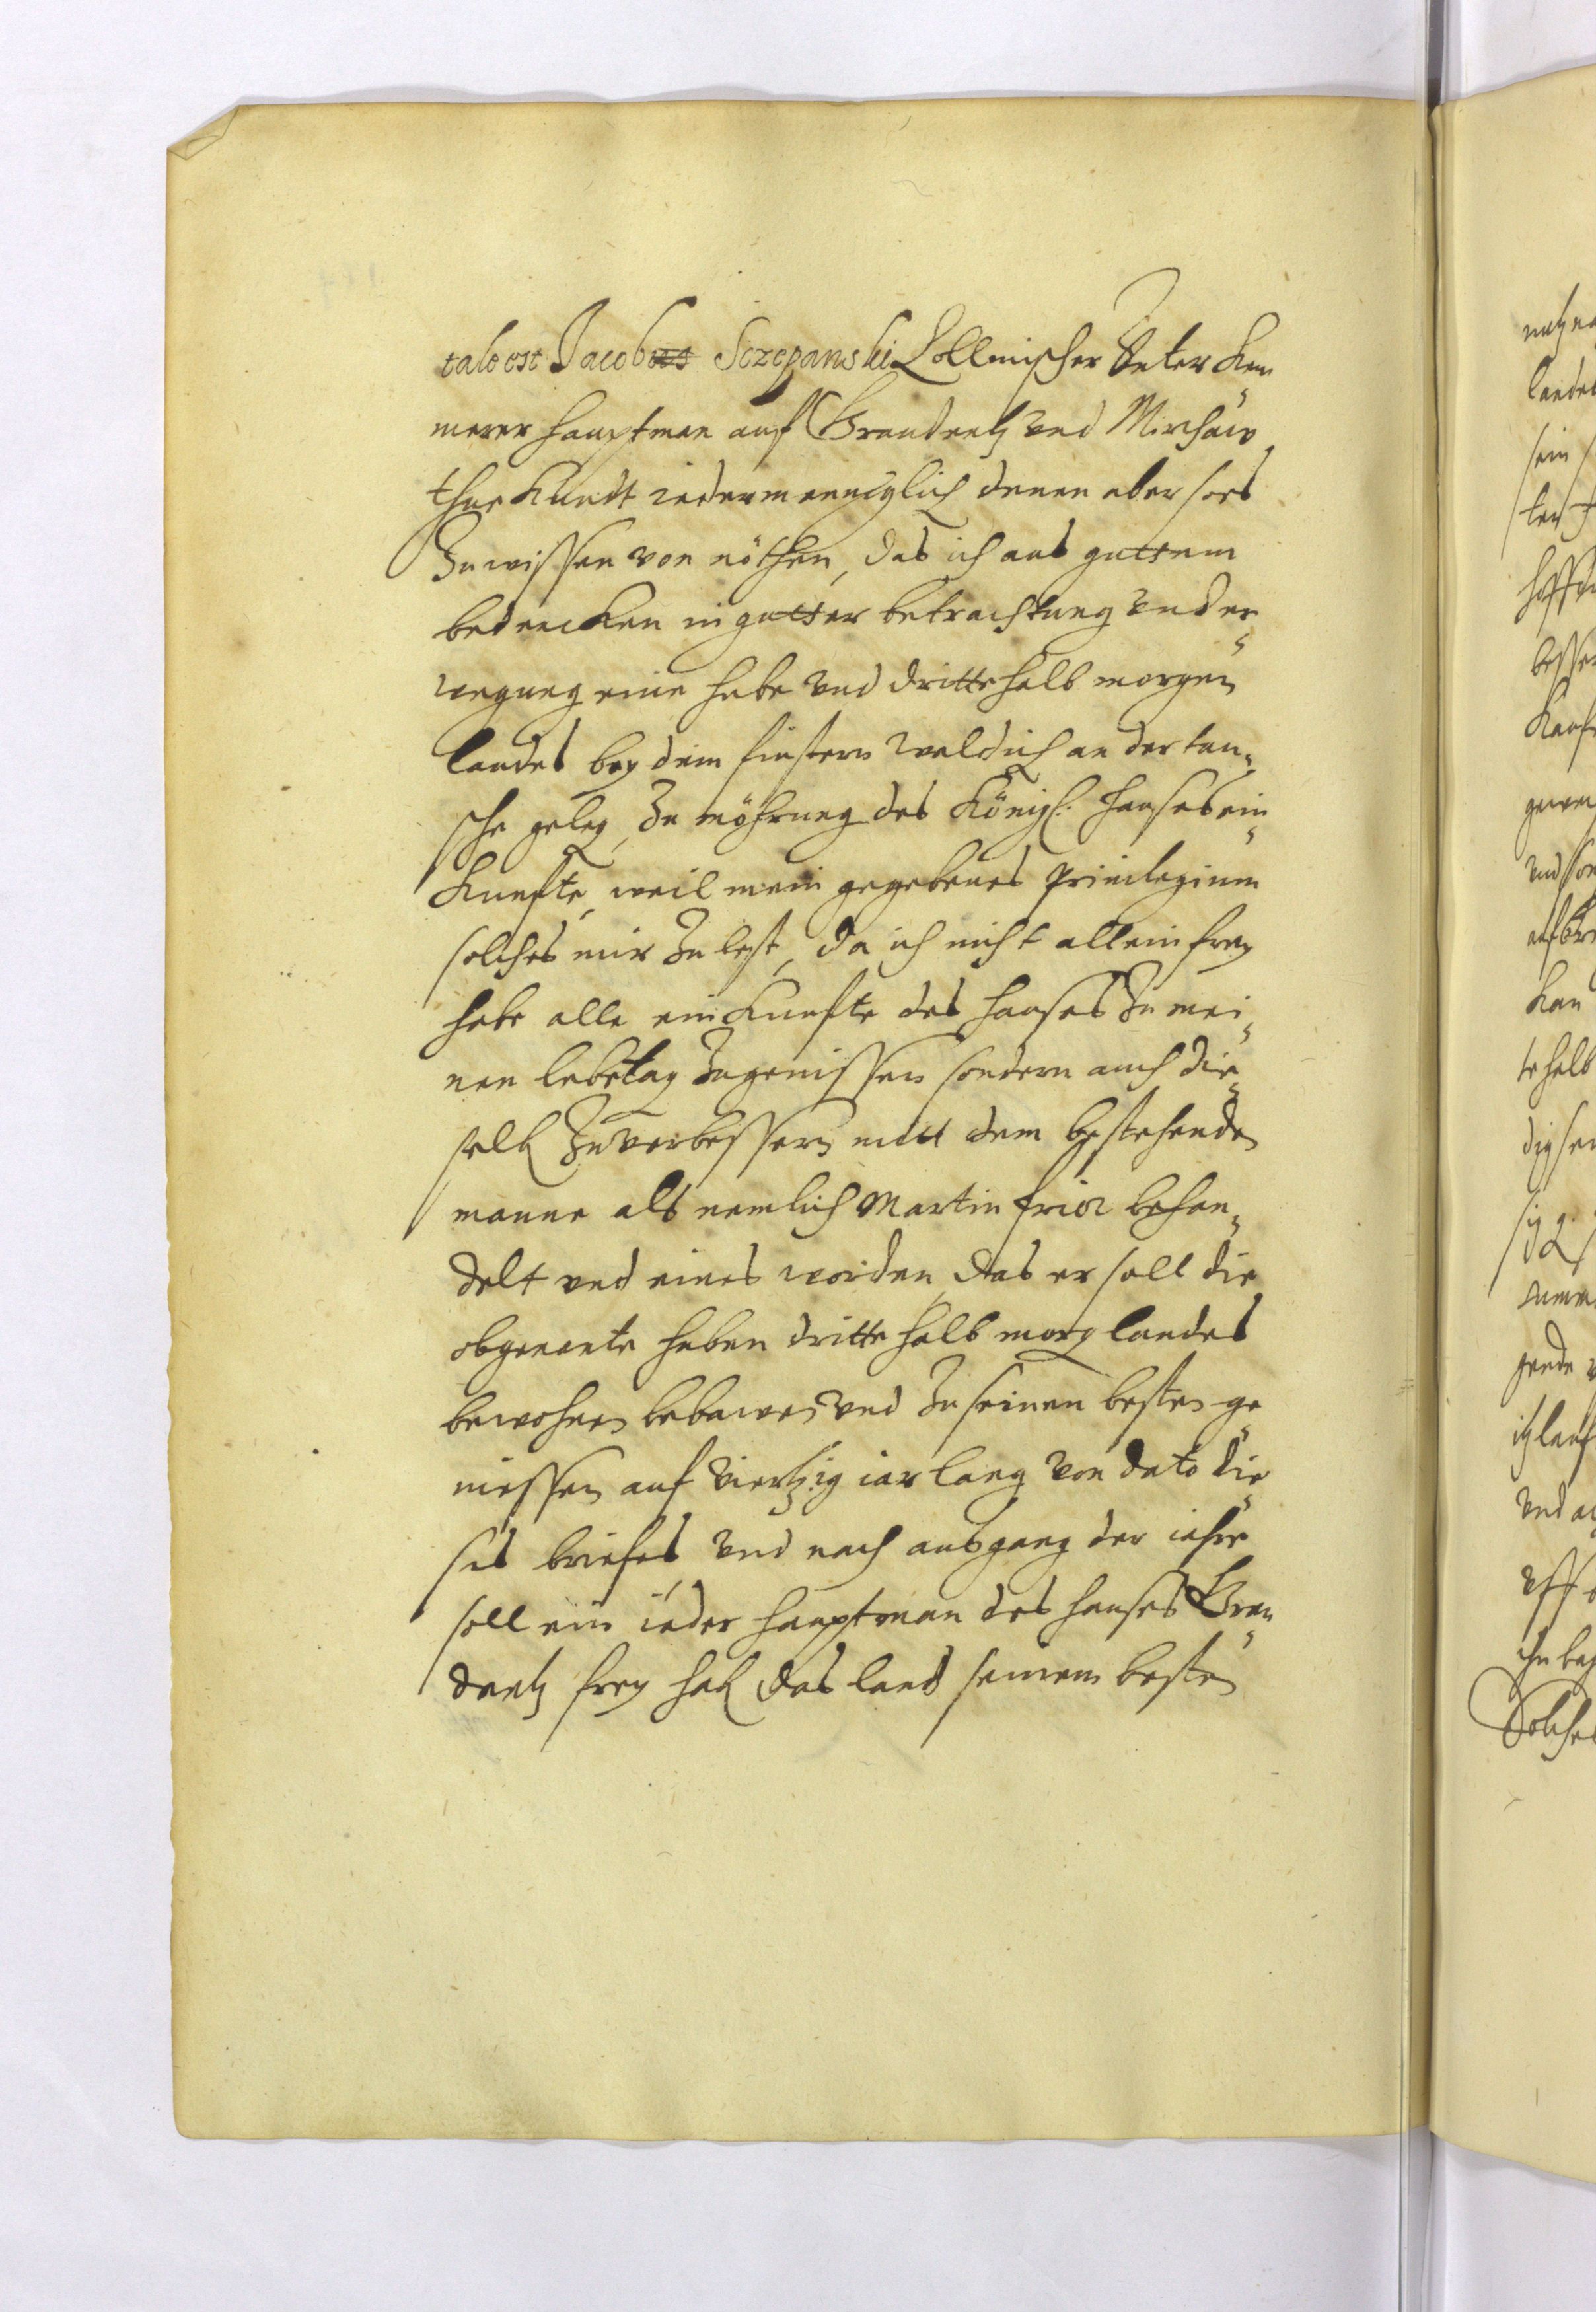 tale est Jacobus Sczepanski Collmischer Unter Kem„
merer Hauptman auf Graudentz und Mirchaw
thue Kundt iedermenniglich denen aber so es
Zu wissen von nöthen, das ich aus guttem
bedencken in gutter betrachtung und er„
wegung eine hube und drittehalb morgen
landes bey dem finstern
sche geleg, Zu möhrung des Königl: Hauses ein„
Kunffte, weil mein gegebenes Privilegium
solches mir Zu lest, da ich nicht allein frey
habe alle einkunffte des Hauses Zu mei„
nen lebetag Zugenissen sondern auch die„
selb Zuverbessern mitt dem bestehende
manne als nemlich Martin behan„
delt und eines worden, das er soll die
obgenante huben drittehalb morg landes
bewohnen bebawen und Zu seinen besten ge„
niessen auf Viertzig iar lang von dato die„
ses briefes, und nach ausgang der iahre
soll ein ieder Hauptman des Hauses Grau„
dentz frey hab das land seinem besten